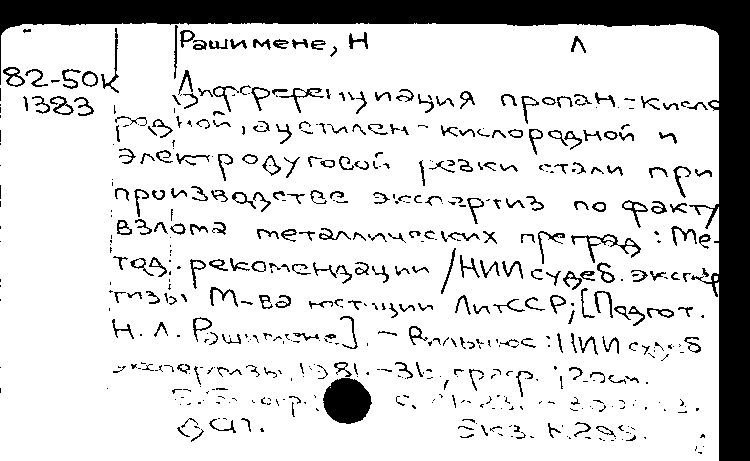 Рашимене, Н Л
82-50к
1383
Дифференциация пропан-кисло
родной, ацетилен-кислородной и
электродуговой резки стали при
производстве экспертиз по факту
взлома металлических преград: Ме-
тод. рекомендации /НИИ судеб. экспер
тизы М-ва юстиции ЛитССР; [Подгот.
Н. Л. Рашимене]. - Вильнюс: НИИ судеб
экспертизы, 1981. - 31с, граф.; 20см.
с.
Экз. К.295.